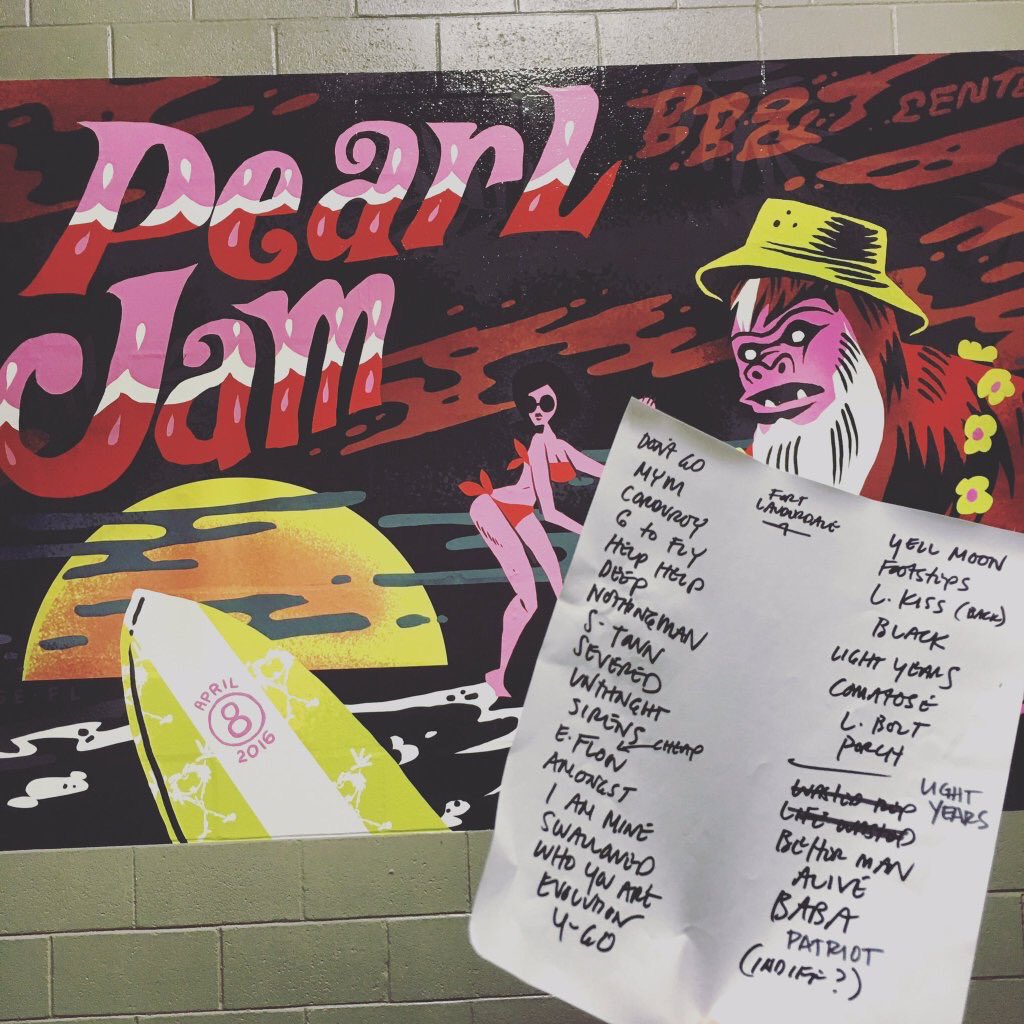 Pearl
Jam
BB&T CENTE
APRIL
8
2016
DON'T GO
MYM
CORDUROY
G to FLY
HELP HELP
DEEP
NOTHINGMAN
S. TOWN
SEVERED
UNTHNGHT
SIRENS
E. FLOW CHEAP
AMONGST
I AM MINE
SWALLOWED
WHO YOU ARE
EVOLUTION
Y-GO
FORT
LAUDERDALE
YELL MOON
FOOTSTEPS
L. KISS (BACK)
BLACK
LIGHT YEARS
COMATOSE
L. BOLT
PORCH
LIGHT
YEARS
LIFE WASTED
BETTER MAN
ALIVE
BABA
PATRIOT
(INDIFF?)